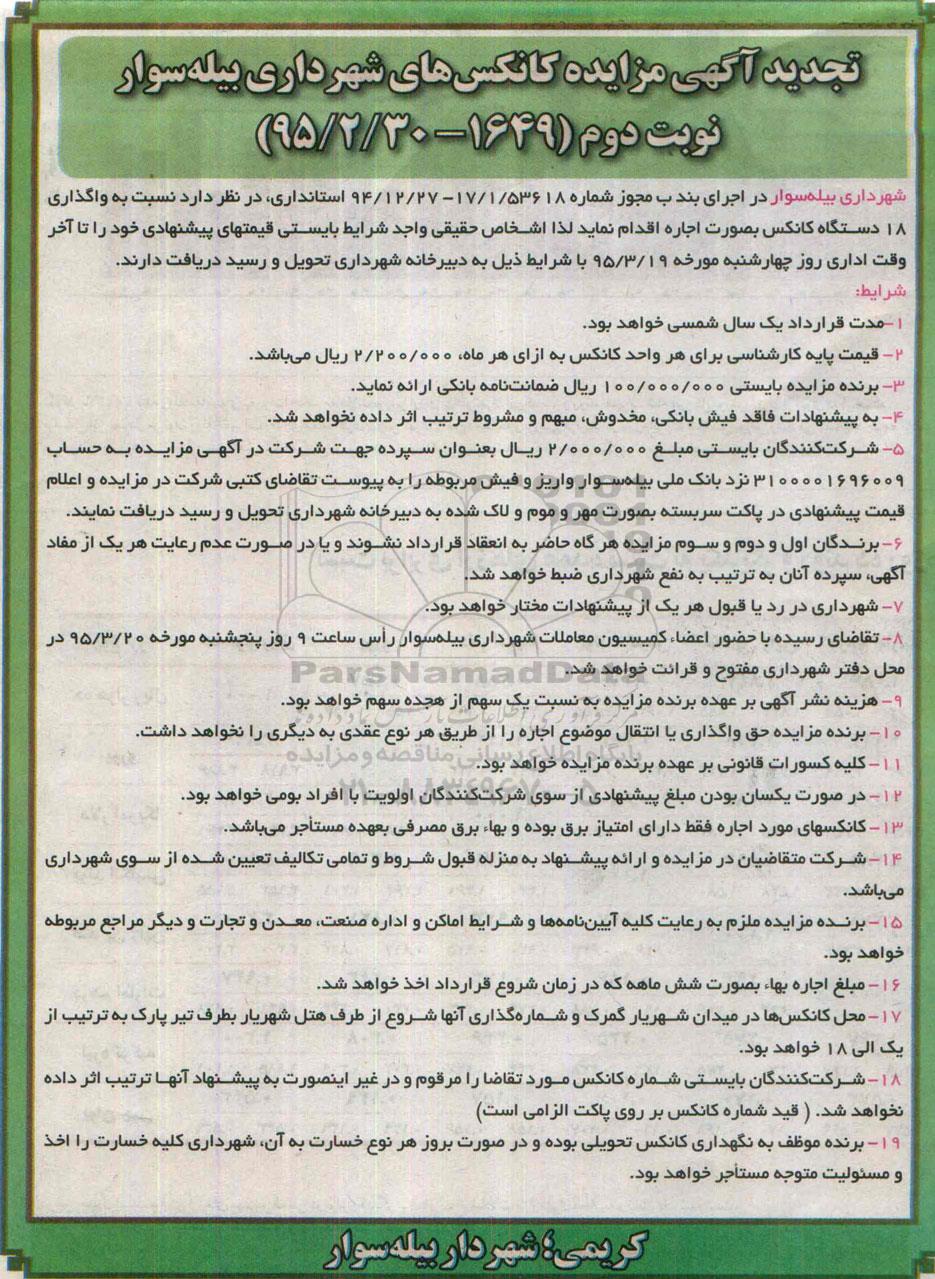 تجدید آگهی مزایده کانکس‌های شهرداری بیله‌سوار
نوبت دوم (۱۶۴۹-۹۵/۲/۳۰)
شهرداری بیله‌سوار در اجرای بند ب مجوز شماره ۱۷/۱/۵۳۶۱۸-۹۴/۱۲/۲۷ استانداری، در نظر دارد نسبت به واگذاری
۱۸ دستگاه کانکس بصورت اجاره اقدام نماید لذا اشخاص حقیقی واجد شرایط بایستی قیمتهای پیشنهادی خود را تا آخر
وقت اداری روز چهارشنبه مورخه ۹۵/۳/۱۹ با شرایط ذیل به دبیرخانه شهرداری تحویل و رسید دریافت دارند.
شرایط:
۱-مدت قرارداد یک سال شمسی خواهد بود.
۲- قیمت پایه کارشناسی برای هر واحد کانکس به ازای هر ماه، ۲/۲۰۰/۰۰۰ ریال می‌باشد.
۳- برنده مزایده بایستی ۱۰۰/۰۰۰/۰۰۰ ریال ضمانت‌نامه بانکی ارائه نماید.
۴- به پیشنهادات فاقد فیش بانکی، مخدوش، مبهم و مشروط ترتیب اثر داده نخواهد شد.
۵- شرکت‌کنندگان بایستی مبلغ ۲/۰۰۰/۰۰۰ ریال بعنوان سپرده جهت شرکت در آگهی مزایده به حساب
۳۱۰۰۰۰۱۶۹۶۰۰۹ نزد بانک ملی بیله‌سوار واریز و فیش مربوطه را به پیوست تقاضای کتبی شرکت در مزایده و اعلام
قیمت پیشنهادی در پاکت سربسته بصورت مهر و موم و لاک شده به دبیرخانه شهرداری تحویل و رسید دریافت نمایند.
۶- برندگان اول و دوم و سوم مزایده هر گاه حاضر به انعقاد قرارداد نشوند و یا در صورت عدم رعایت هر یک از مفاد
آگهی، سپرده آنان به ترتیب به نفع شهرداری ضبط خواهد شد.
۷- شهرداری در رد یا قبول هر یک از پیشنهادات مختار خواهد بود.
۸- تقاضای رسیده با حضور اعضاء کمیسیون معاملات شهرداری بیله‌سوار رأس ساعت ۹ روز پنجشنبه مورخه ۹۵/۳/۲۰ در
محل دفتر شهرداری مفتوح و قرائت خواهد شد.
ParsNamadData
۹- هزینه نشر آگهی بر عهده برنده مزایده به نسبت یک سهم از هجده سهم خواهد بود.
۱۰- برنده مزایده حق واگذاری یا انتقال موضوع اجاره را از طریق هر نوع عقدی به دیگری را نخواهد داشت.
۱۱- کلیه کسورات قانونی بر عهده برنده مزایده خواهد بود.
۱۲- در صورت یکسان بودن مبلغ پیشنهادی از سوی شرکت‌کنندگان اولویت با افراد بومی خواهد بود.
۱۳- کانکسهای مورد اجاره فقط دارای امتیاز برق بوده و بهاء برق مصرفی بعهده مستأجر می‌باشد.
۱۴- شرکت متقاضیان در مزایده و ارائه پیشنهاد به منزله قبول شروط و تمامی تکالیف تعیین شده از سوی شهرداری
می‌باشد.
۱۵- برنده مزایده ملزم به رعایت کلیه آیین‌نامه‌ها و شرایط اماکن و اداره صنعت، معدن و تجارت و دیگر مراجع مربوطه
خواهد بود.
۱۶- مبلغ اجاره بهاء بصورت شش ماهه که در زمان شروع قرارداد اخذ خواهد شد.
۱۷- محل کانکس‌ها در میدان شهریار گمرک و شماره‌گذاری آنها شروع از طرف هتل شهریار بطرف تیر پارک به ترتیب از
یک الی ۱۸ خواهد بود.
۱۸- شرکت‌کنندگان بایستی شماره کانکس مورد تقاضا را مرقوم و در غیر اینصورت به پیشنهاد آنها ترتیب اثر داده
نخواهد شد. ( قید شماره کانکس بر روی پاکت الزامی است)
۱۹- برنده موظف به نگهداری کانکس تحویلی بوده و در صورت بروز هر نوع خسارت به آن، شهرداری کلیه خسارت را اخذ
و مسئولیت متوجه مستأجر خواهد بود.
کریمی؛ شهردار بیله‌سوار